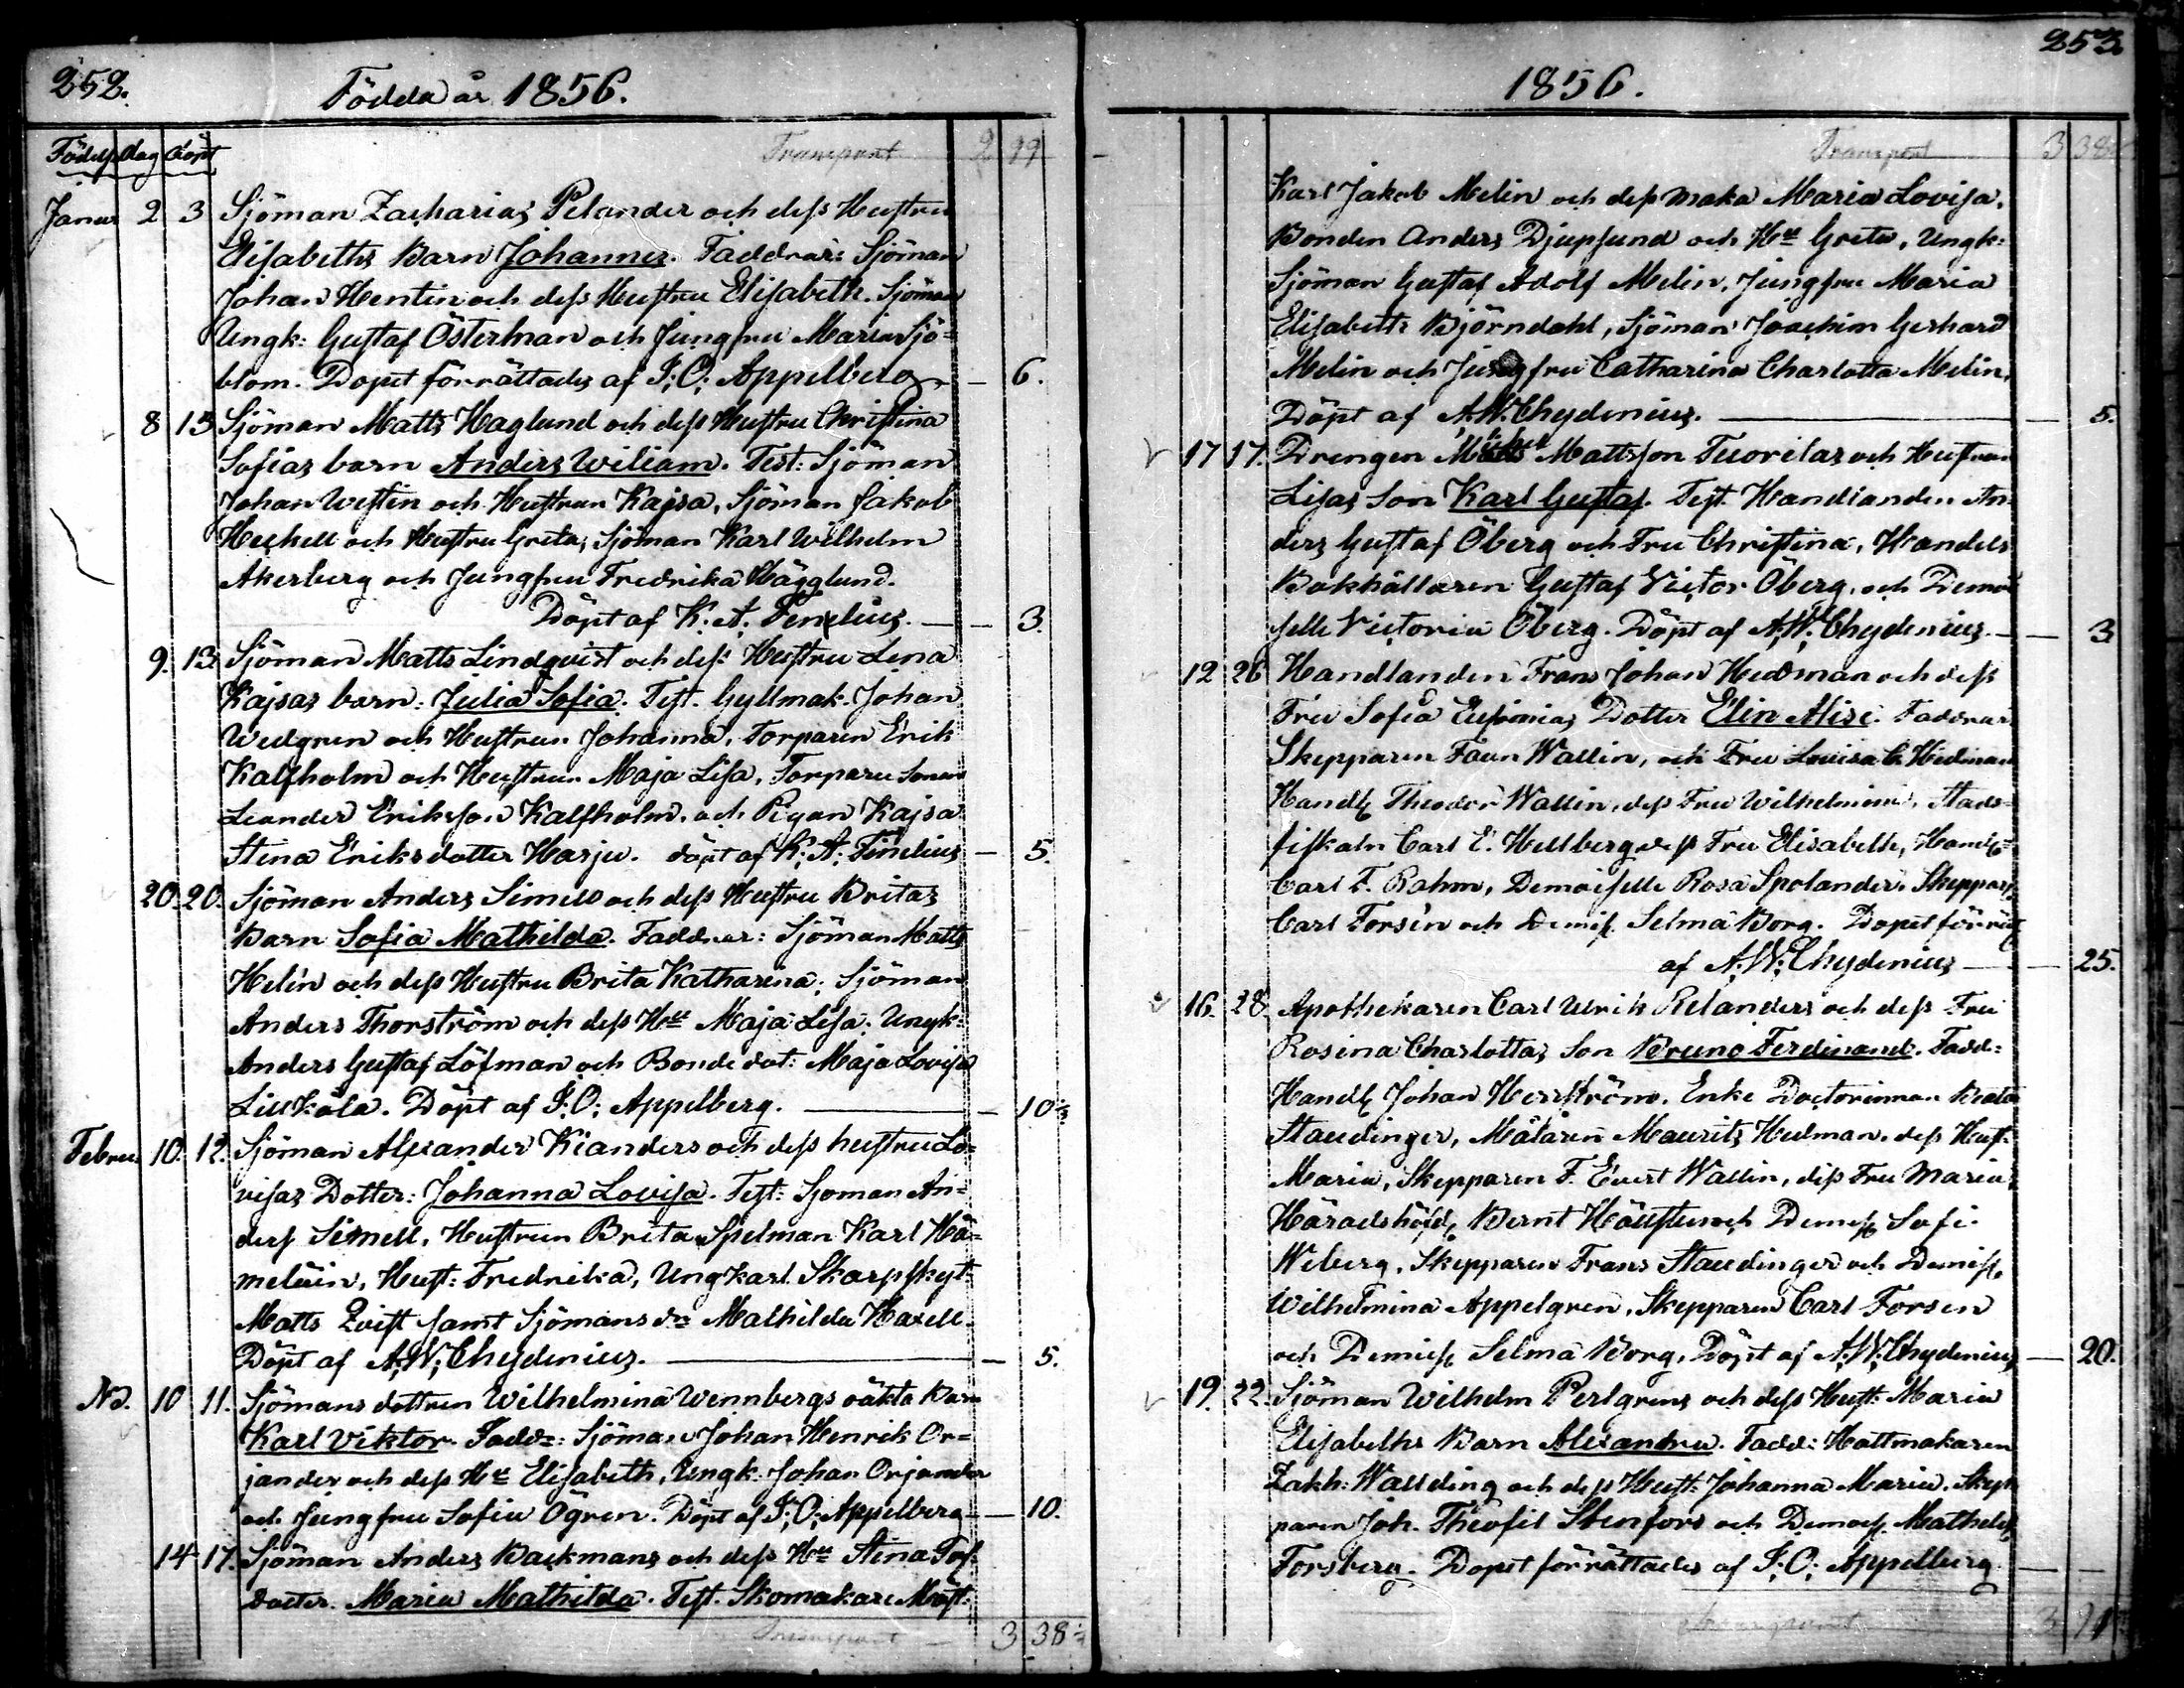 252.
Födda år 1856.
Födels dag Döpt
Transport 2 99
Januar 2 3 Sjöman Zacharias Pelander och dess Hustru
Elisabeths Barn Johannes. Faddrar: Sjöman
Johan Hentin och dess Hustru Elisabeth. Sjöman
Ungk: Gustaf Österman och Jungfru Maria Sjö=
blom. Dopet förrättades af I: O: Appelberg — 6.
8 13 Sjöman Matts Haglund och dess Hustru Christina
Sofias barn Anders Wiliam. Test: Sjöman
Johan Westin och Hustrun Kajsa, Sjöman Jakob
Heskell och Hustru Greta, Sjöman Karl Wilhelm
Akerberg och Jungfru Fredrika Hägglund.
Döpt af K: A: Fenelius. — 3.
9. 13 Sjöman Matts Lindqvist och dess Hustru Lena
Kajsas barn: Julia Sofia. Test. Gyllmak. Johan
Wedgren och Hustrun Johanna, Torparen Erik
Kalfholm och Hustrun Maja Lisa, Torpare Sonen
Leander Eriksson Kalfholm, och Pigan Kajsa
Stina Eriksdotter Harju. döpt af K: A: Finelius — 5.
20. 20. Sjöman Anders Simell och dess Hustru Britas
Barn Sofia Mathilda. Faddrar: Sjöman Matts
Helin och dess Hustru Brita Katharina; Sjöman
Anders Thorström och dess Hu Maja Lisa; Ungk:
Anders Gustaf Löfman och Bonde dot: Maja Lovisa
Lillkåla. Döpt af I: O: Appelberg. — 10
Febru. 10. 12. Sjöman Alexander Kianders och dess hustru Lo=
visas Dotter: Johanna Lovisa. Test: Sjöman An=
ders Simell, Hustrun Brita, Spelman Karl Hä=
meläin, Hust: Fredrika, Ungkarl Skarpskyt:
Matts Qvist samt Sjömans dr Mathilda Haxell.
Döpt af A: W: Chydenius. — 5.
Nd. 10 11. Sjömans dottren Wilhelmina Wennbergs oäkta Barn
Karl Viktor. Fadd: Sjöman Johan Henrik Or=
jander och dess Hu Elisabeth, Ungk. Johan Orjander
och Jungfru Sofia Ögren. Döpt af I: O: Appelberg — 10.
14 17. Sjöman Anders Backmans och dess Hu Stina
Docter. Maria Mathilda. Test. Skomakare Mäst:
Transport — 3 38
253
1856.
Transport 3 38
Karl Jakob Melin och dess maka Maria Lovisa,
Bonden Anders Djupsund och Hu Greta, Ungk:
Sjöman Gustaf Adolf Melin, Jungfru Maria
Elisabeth Björndahl, Sjöman Joachim Gerhard
Melin och Jungfru Catharina Charlotta Melin,
Döpt af A. W. Chydenius. — 5.
17 17. Drengen Mattsson Tuorilas och Hustrun
Lisas Son Karl Gustaf. Test. Handlanden An=
ders Gustaf Öberg och Fru Christina, Handels
Bokhållaren Gustaf Victor Öberg, och Demoi
selle Victoria Öberg. Döpt af A: W: Chydenius. — 3
12 26 Handlanden Frans Johan Hedman och dess
Fru Sofia Eufemias Dotter Elin Alise. Faddrar
Skepparen Wallin, och Fru Lovisa C. Hedman
Handl Theodor Wallin, dess Fru Wilhelmina, Stads=
fiskaln Carl E. Hellberg, dess Fru Elisabeth, Handl
Carl F. Rahm, Demoiselle Rosa Spolander, Skeppar
Carl Forsén och Demois Selma Borg. Dopet förrätt
af A: W: Chydenius — 25.
16. 28 Apothekaren Carl Ulrik Relanders och dess Fru
Rosina Charlottas Son Bruno Ferdinand. Fadd:
Handl Johan Herrström, Enke Doctorinnan Beata
Staudinger, Målaren Mauritz Hedman, dess Hust:
Maria, Skepparen F. Evert Wallin, dess Fru Maria,
Häradshöfd. Bernt Häusten och Demois Sofi
Weberg, Skepparen Frans Staudinger och Demois.
Wilhelmina Appelgren, Skepparen Carl Forsen
och Demois Selma Borg, Döpt af A: W: Chydenius — 20.
19. 22. Sjöman Wilhelm Perlgrens och dess Hust: Maria
Elisabeths Barn Alexandra. Fadd: Hattmakaren
Zakh: Wallding och dess Hust: Johanna Maria, Skep
paren Joh. Theofil Stenfors och Demois. Mathilda
Forsberg. Dopet förrättades af I: O: Appelberg —
Transport 3 91